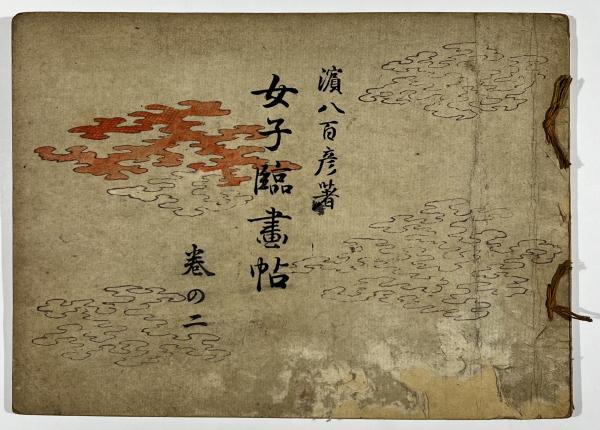 濵八百彦著
女子臨畫帖
巻の二